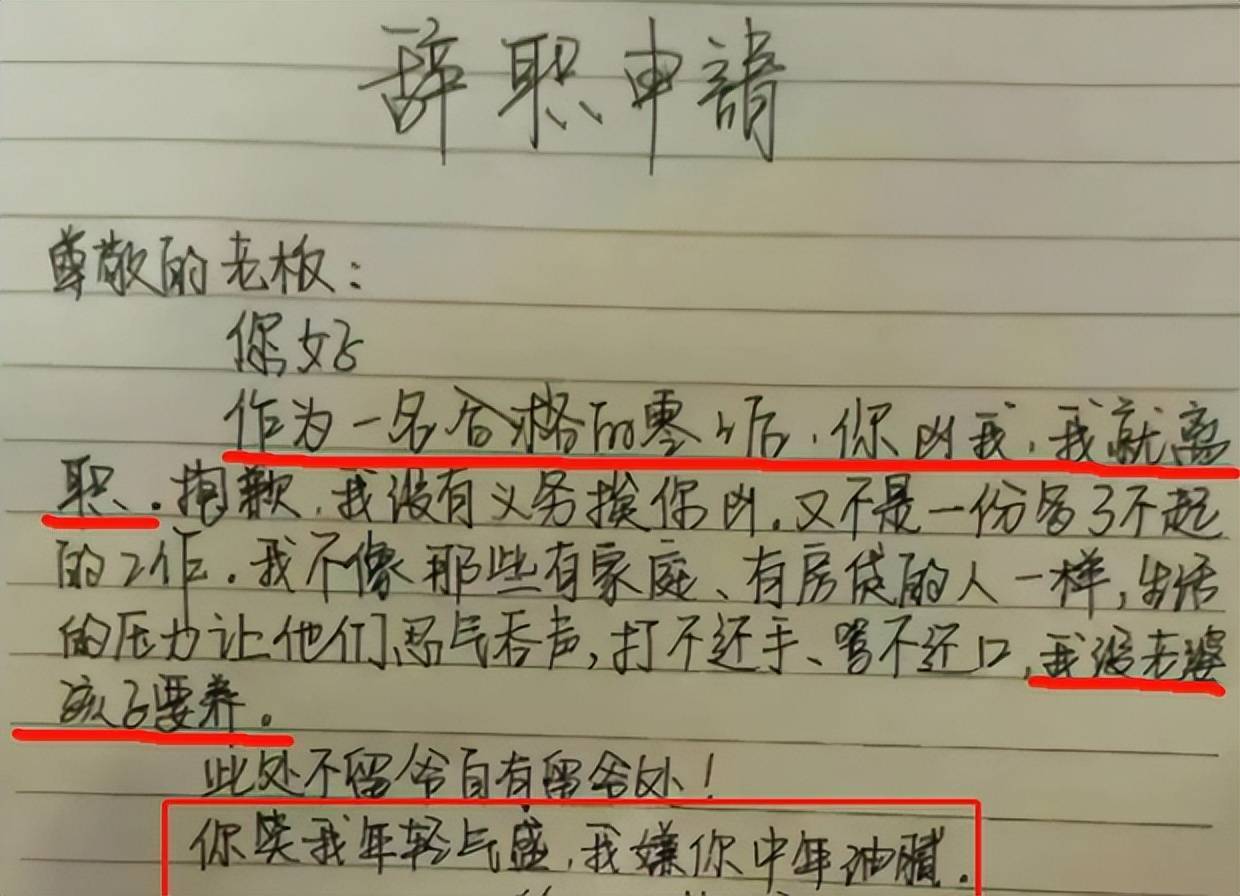 辞职申請
尊敬的老板：
你好
作为一名合格的零0后，你凶我，我就离
职。抱歉，我没有义务挨你凶。又不是一份多了不起
的工作。我不像那些有家庭、有房贷的人一样，生活
的压力让他们忍气吞声，打不还手、骂不还口，我没老婆
孩子要养。
此处不留爷自有留爷处！
你笑我年轻气盛，我嫌你中年油腻。